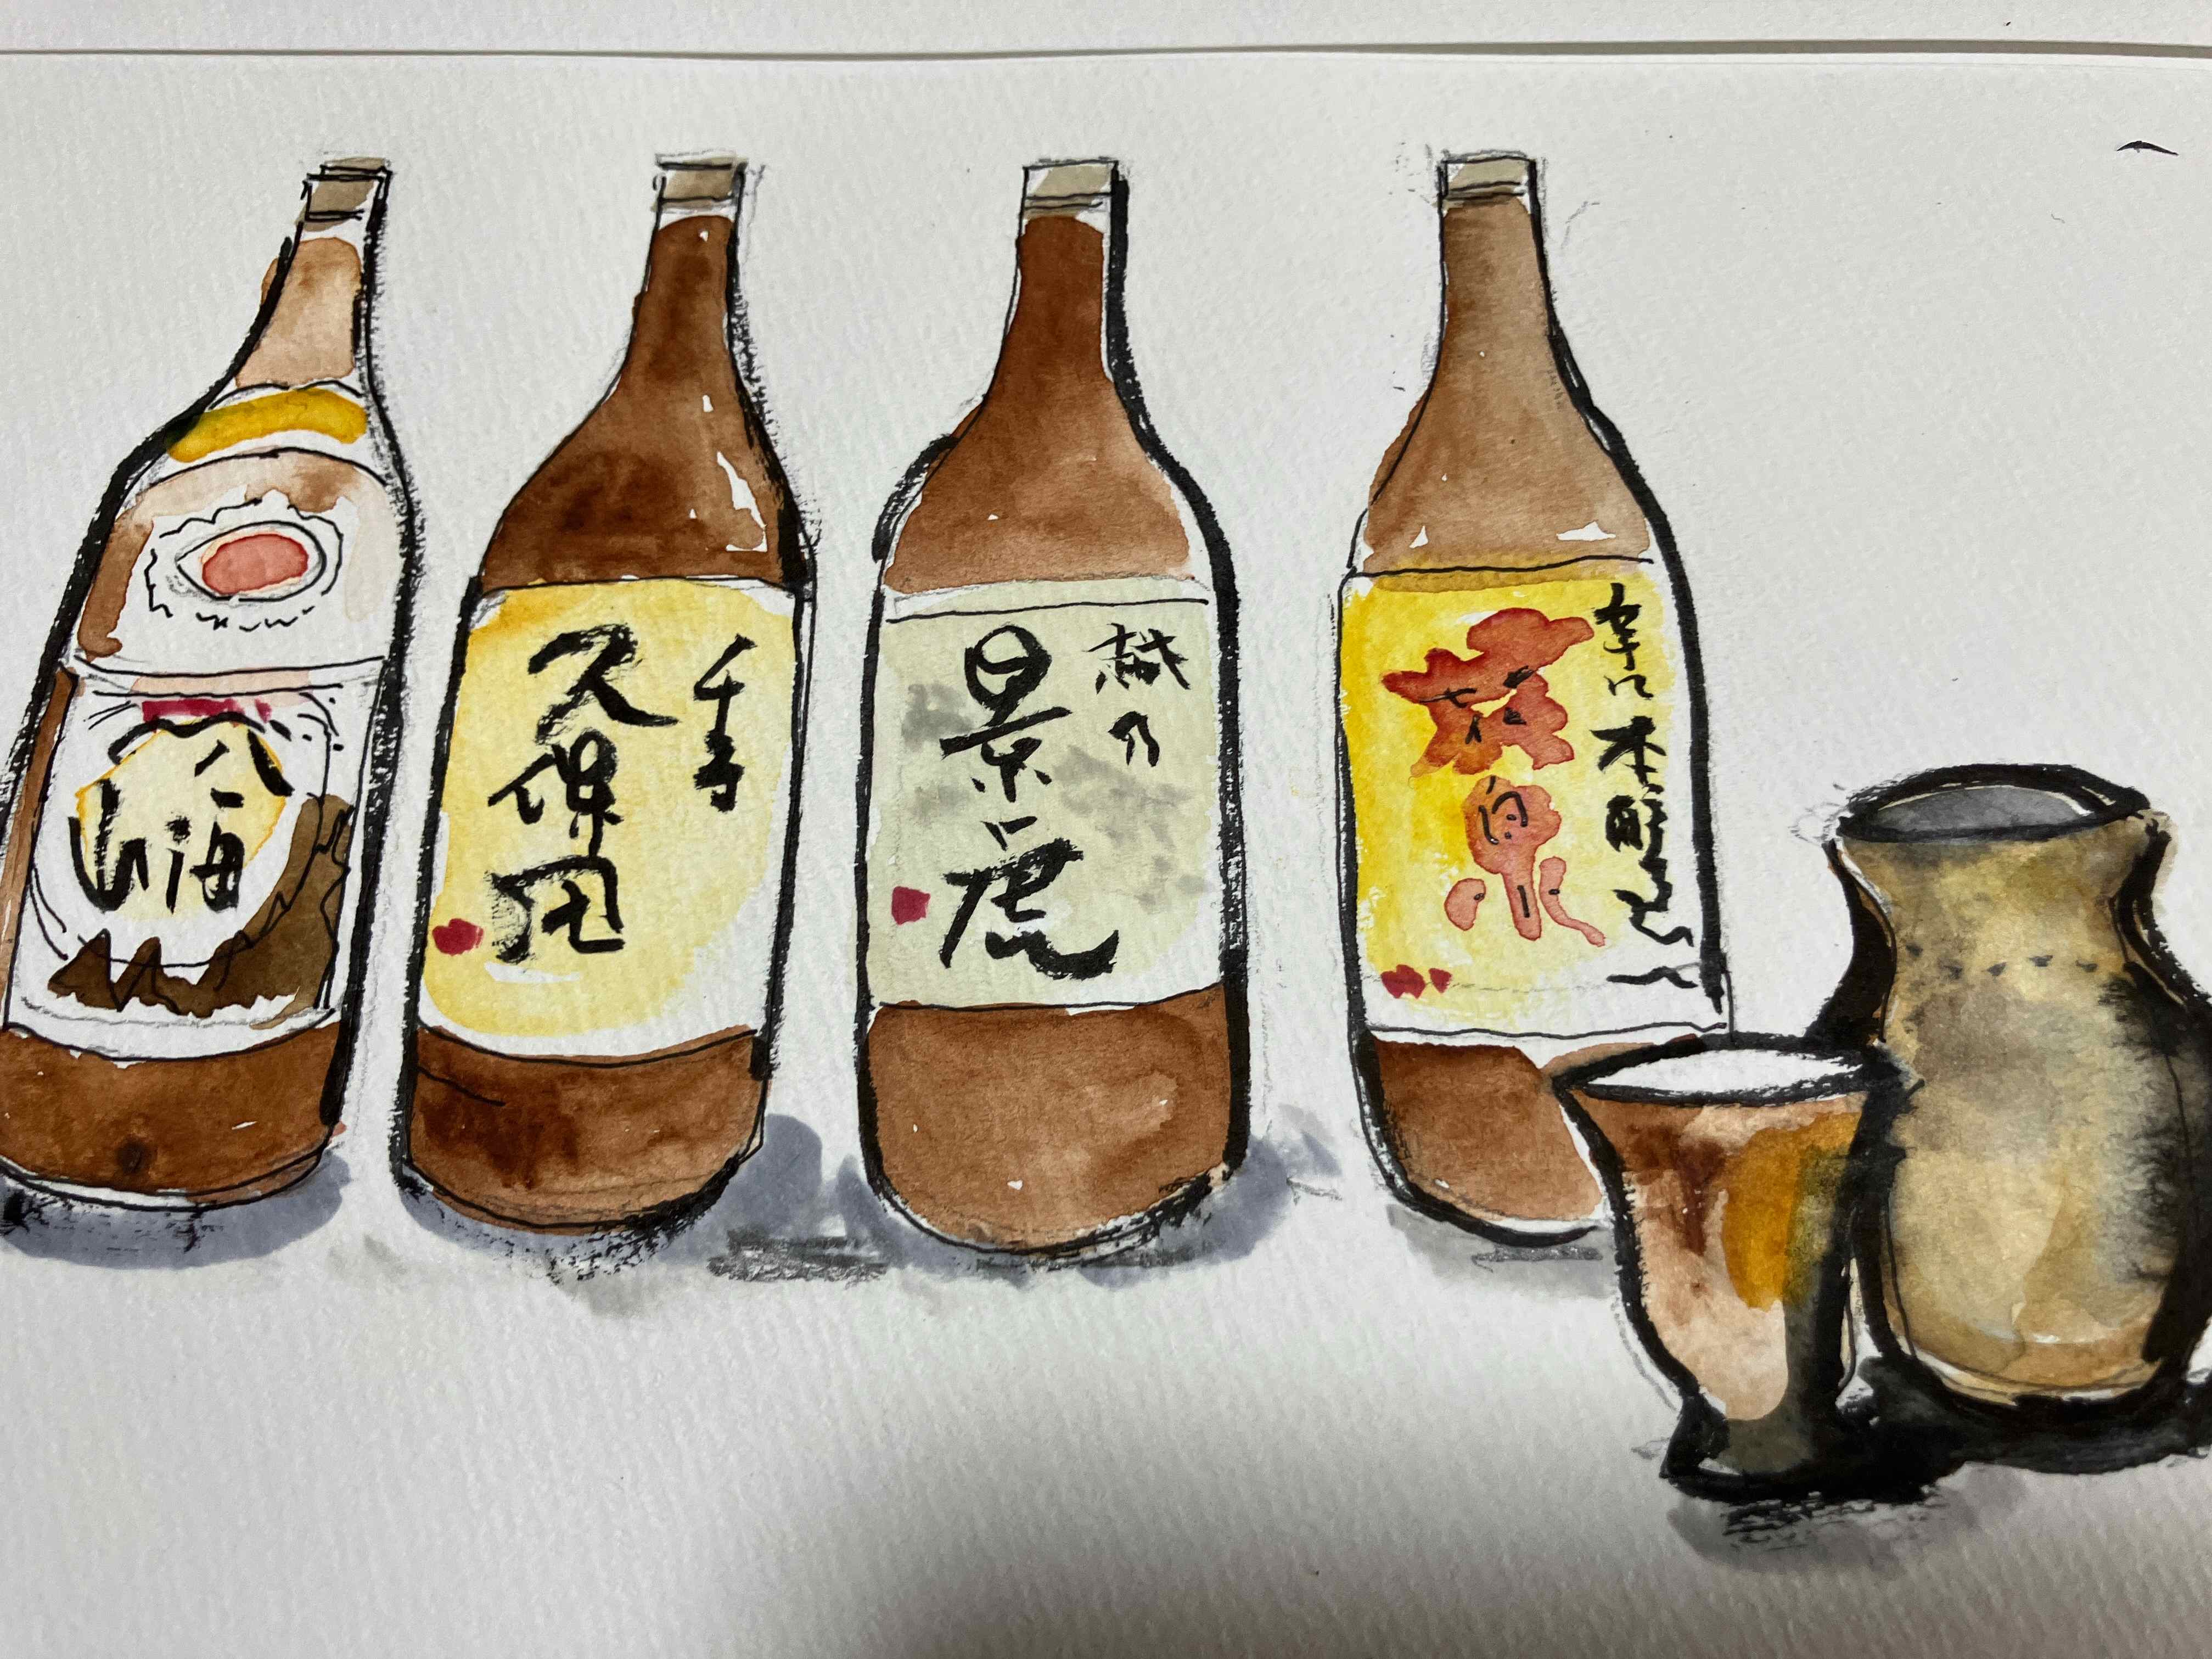 八海山
千寿
久保田
越乃
景虎
辛口 本醸造
泉